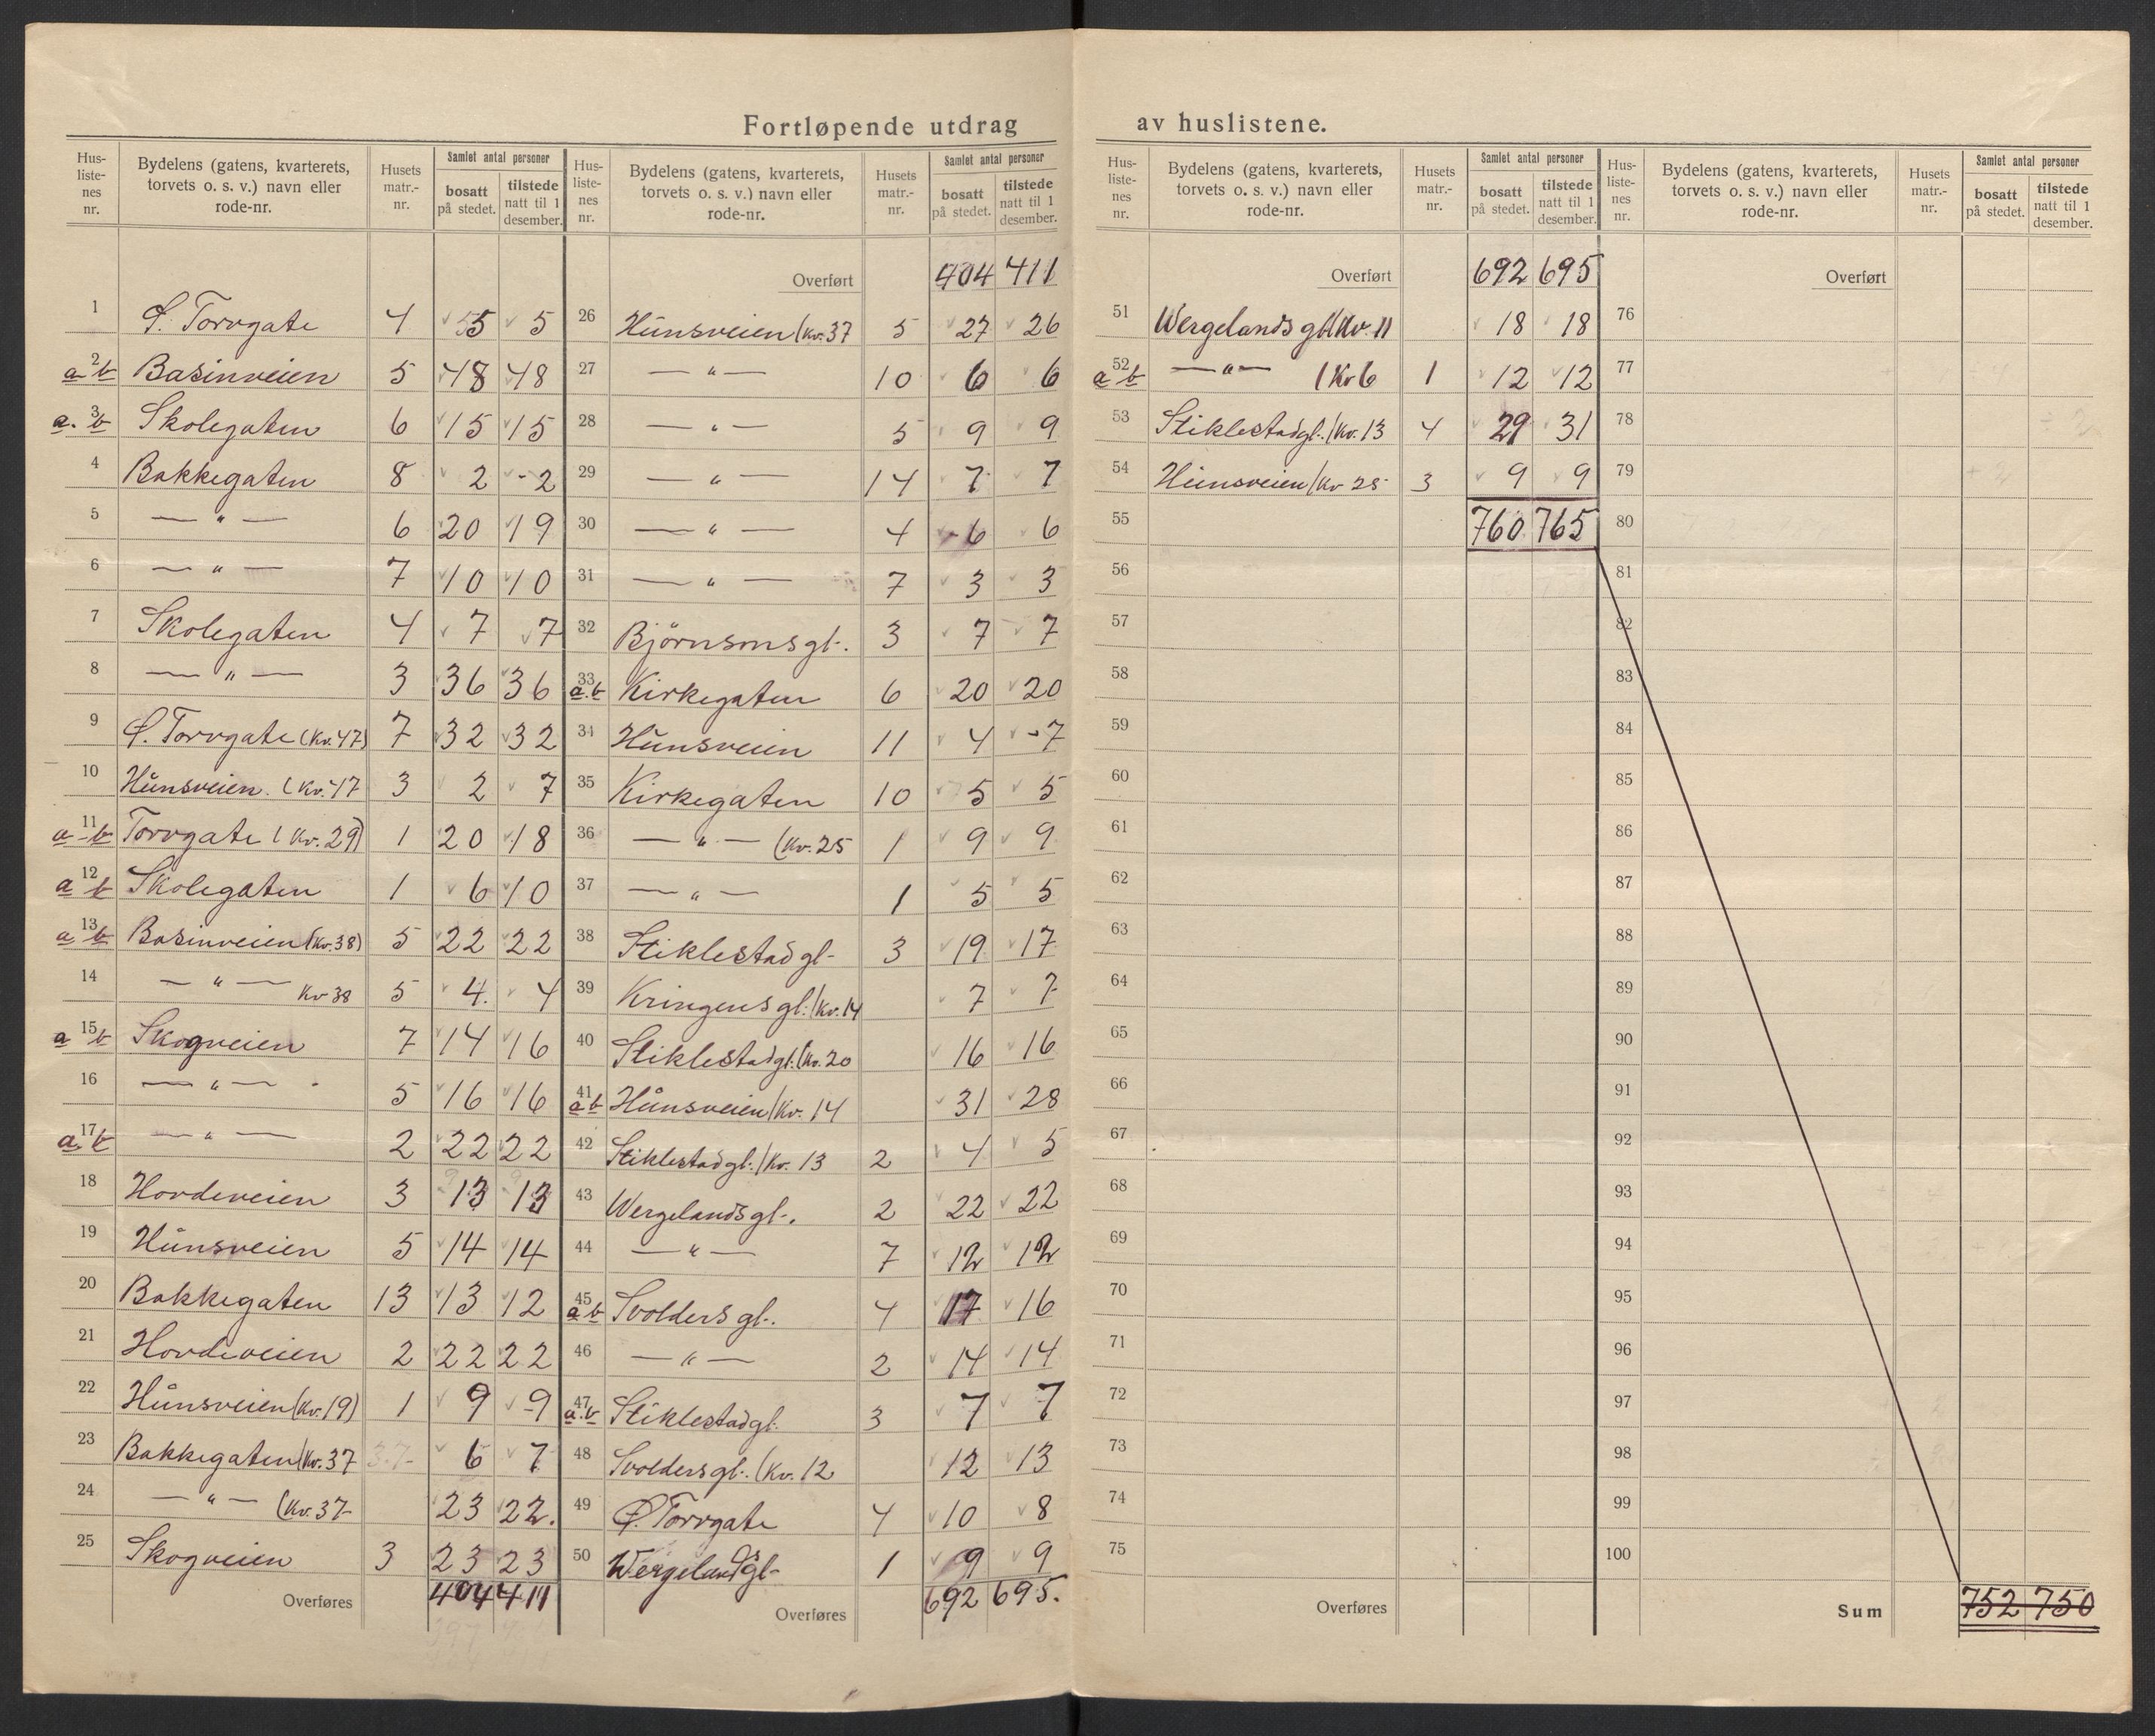 Fortløpende utdrag av huslistene.
Hus-liste-nes nr. Bydelens (gatens, kvarterets, torvets o. s. v.) navn eller rode-nr. Husets matr.-nr. Samlet antal personer bosatt på stedet. tilstede natt til 1 desember.
1 Ø. Torvgate 4 5 5
a 2 b Basinveien 5 48 48
a. 3 b Skolegaten 6 15 15
4 Bakkegaten 8 2 2
5 — " — 6 20 19
6 — " — 7 10 10
7 Skolegaten 4 7 7
8 — " — 3 36 36
9 Ø. Torvgate (Kv. 47) 7 32 32
10 Hünsveien. (Kv. 47 3 2 7
11 a-b Torvgate (Kv. 29) 1 20 18
12 a b Skolegaten 1 6 10
13 a b Basinveien (Kv. 38) 5 22 22
14 — " — Kv 38 5 4. 4
15 a b Skogveien 7 14 16
16 — " — 5 16 16
17 a. b — " — 2 22 22
18 Hordeveien 3 13 13
19 Hünsveien 5 14 14
20 Bakkegaten 13 13 12
21 Hordeveien 2 22 22
22 Hünsveien (Kv. 19) 1 9 9
23 Bakkegaten (Kv. 37 6 7
24 — " — (Kv. 37 23 22.
25 Skogveien 3 23 23
Overføres 404 411
Hus-liste-nes nr. Bydelens (gatens, kvarterets, torvets o. s. v.) navn eller rode-nr. Husets matr.-nr. Samlet antal personer bosatt på stedet. tilstede natt til 1 desember.
Overført 404 411
26 Hünsveien (Kv. 37 5 27 26
27 — " — 10 6 6
28 — " — 5 9 9
29 — " — 14 7 7
30 — " — 4 6 6
31 — " — 7 3 3
32 Björnsonsgt. 3 7 7
33 a.b Kirkegaten 6 20 20
34 Hünsveien 11 4 7
35 Kirkegaten 10 5 5
36 — " — (Kv. 25 1 9 9
37 — " — 1 5 5
38 Stiklestadgt- 3 19 17
39 Kringensgt. (Kv. 14 7 7
40 Stiklestadgt. (Kv. 20 16 16
41 a b Hünsveien (Kv. 14 31 28
42 Stiklestadgt. (Kv. 13 2 4 5
43 Wergelandsgt. 2 22 22
44 — " — 7 12 12
45 a b Svoldersgt. 4 17 16
46 — " — 2 14 14
47 a.b Stiklestadgt. 3 7 7
48 Svoldersgt. (Kv. 12 12 13
49 Ø. Torvgate 4 10 8
50 Wergelandsgt- 1 9 9
Overføres 692 695.
Hus-liste-nes nr. Bydelens (gatens, kvarterets, torvets o. s. v.) navn eller rode-nr. Husets matr.-nr. Samlet antal personer bosatt på stedet. tilstede natt til 1 desember.
Overført 692 695
51 Wergelandsgt (Kv. 11 18 18
52 a b — " — (Kv 6 1 12 12
53 Stiklestadgt. (Kv. 13 4 29 31
54 Hünsveien (Kv 25 3 9 9
55 760 765
56
57
58
59
60
61
62
63
64
65
66
67
68
69
70
71
72
73
74
75
Overføres
Hus-liste-nes nr. Bydelens (gatens, kvarterets, torvets o. s. v.) navn eller rode-nr. Husets matr.-nr. Samlet antal personer bosatt på stedet. tilstede natt til 1 desember.
Overført
76
77
78
79
80
81
82
83
84
85
86
87
88
89
90
91
92
93
94
95
96
97
98
99
100
Sum 752 750